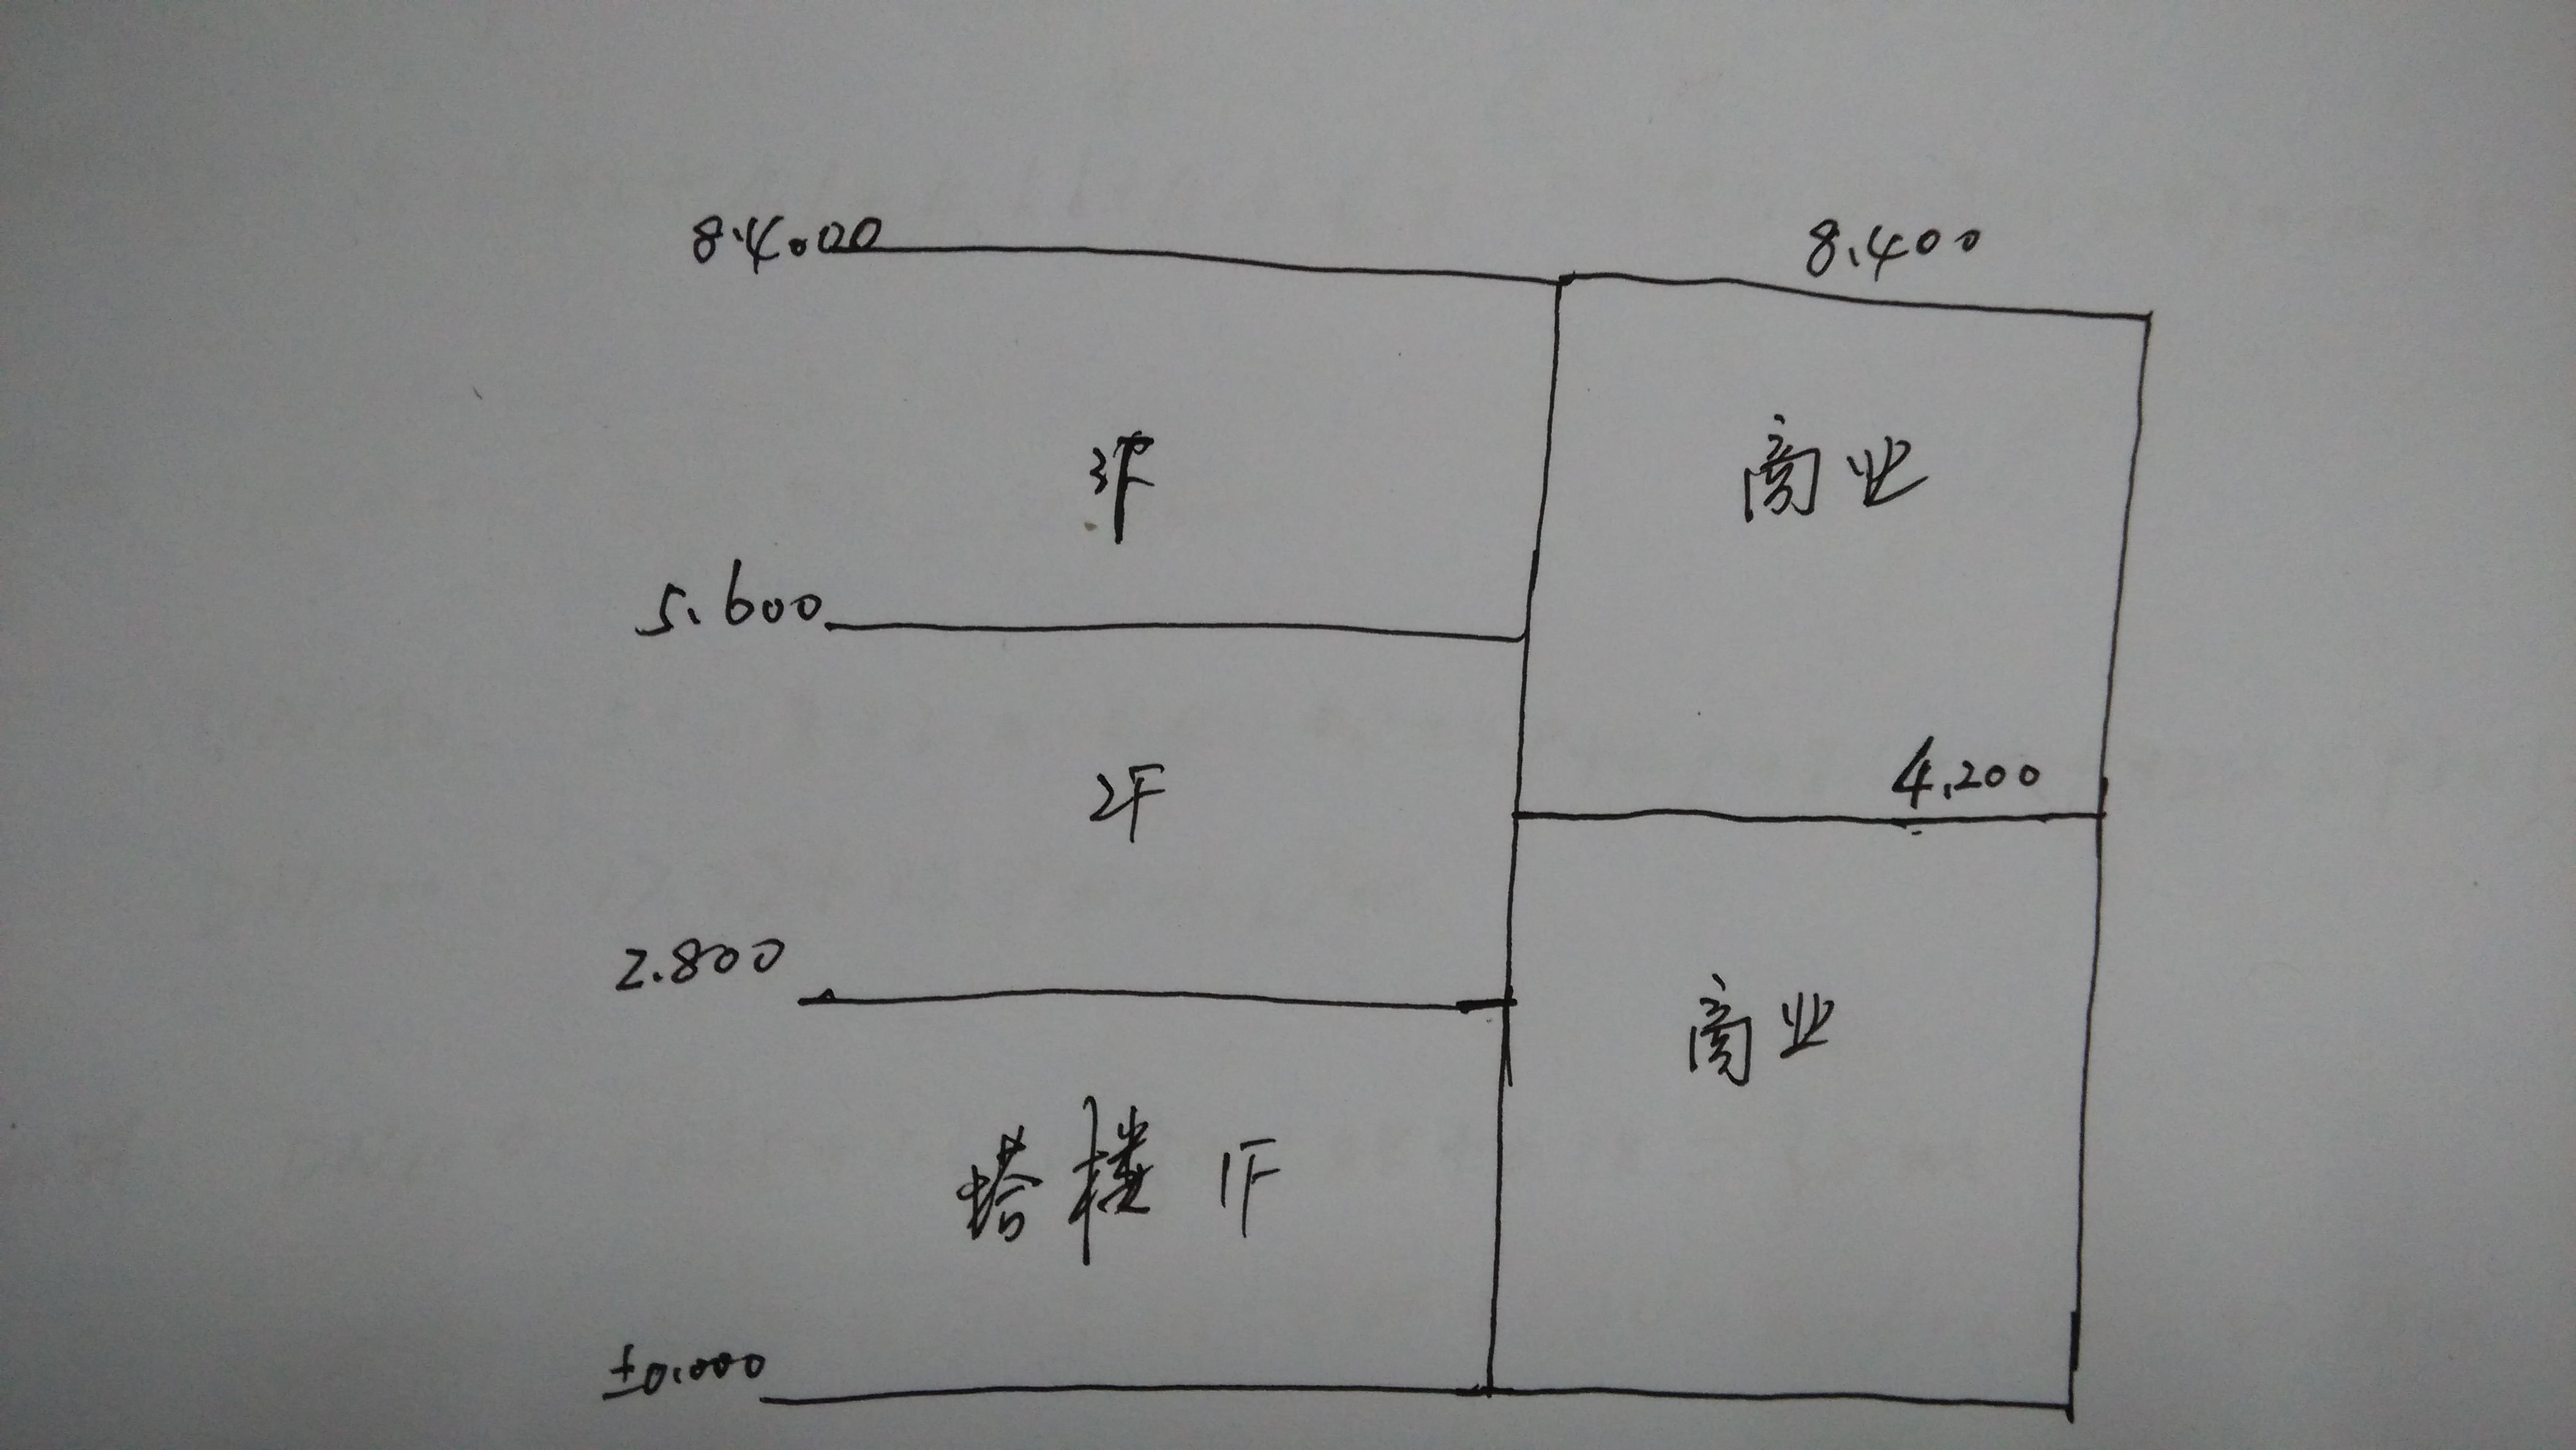 8.4.00
8.400
3F
商业
5.600
2F
4.200
2.800
商业
塔楼 1F
±0.000